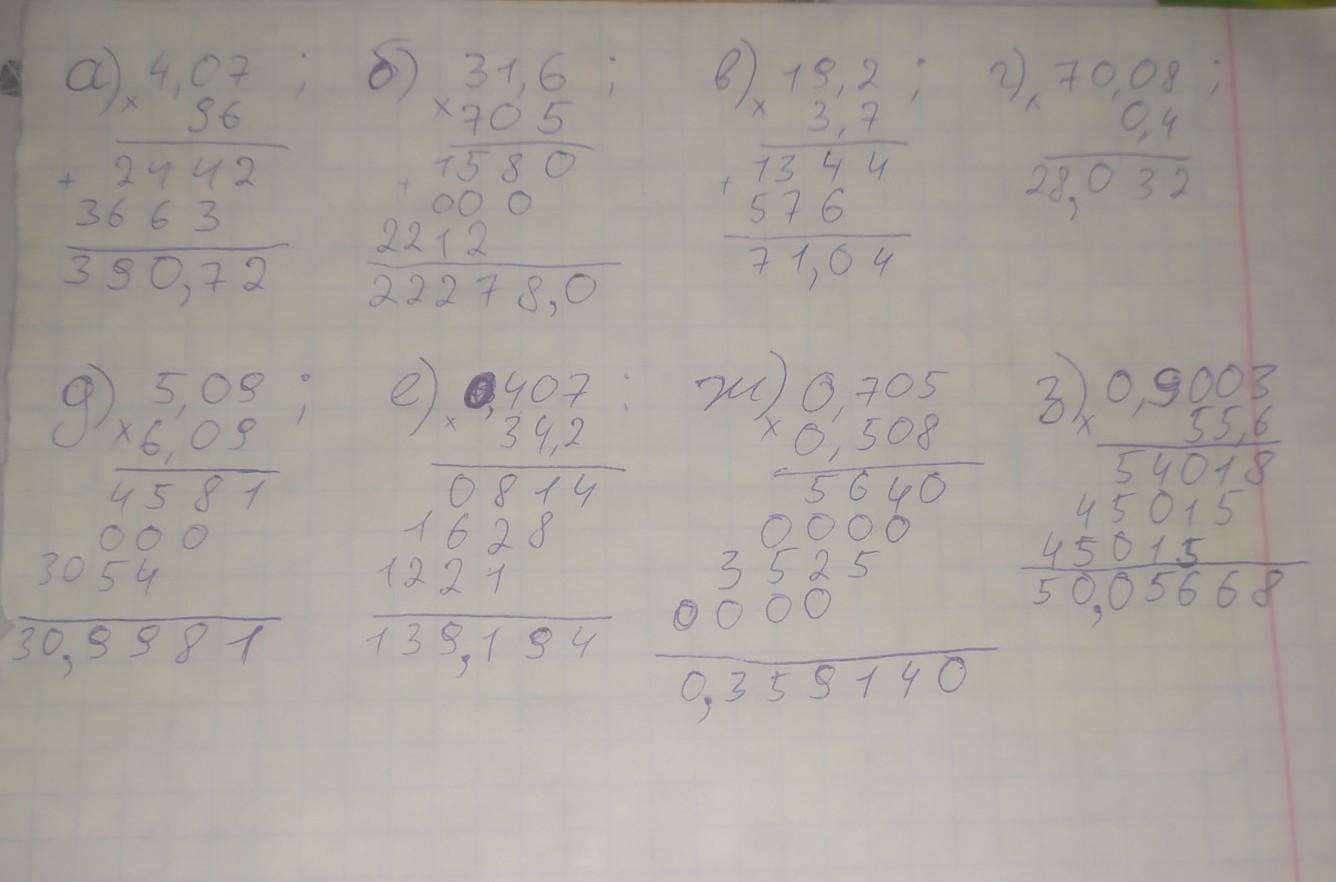 а) 4,07 ; б) 31,6 ; в) 19,2 ; г) 70,08 ;
× 96 × 705 × 3,7 × 0,4
+ 2442 + 1580 + 1344 28,032
3663 000 576
390,72 2212 71,04
22278,0
д) 5,09 ; е) 0,407 ; ж) 0,705 з) 0,9003
× 6,09 × 34,2 × 0,508 × 55,6
4581 0814 5640 54018
000 1628 0000 45015
3054 1221 3525 45015
30,9981 139,194 0000 50,05668
0,359140